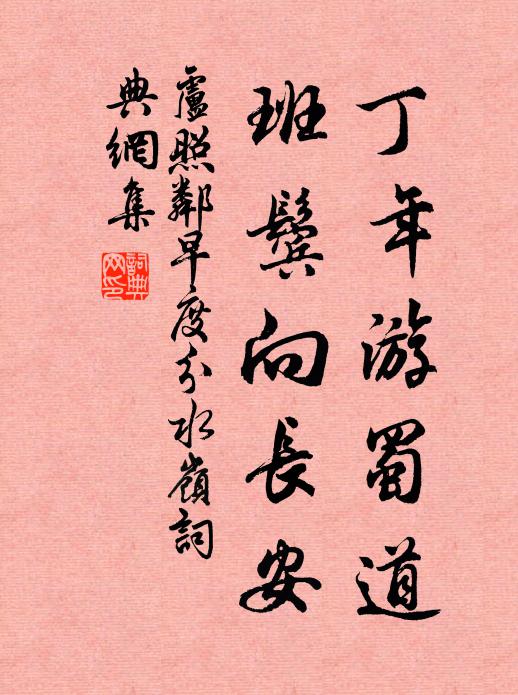 丁年游蜀道
班鬢向長安
盧照鄰早度分水嶺詞
典網集
詞典網印